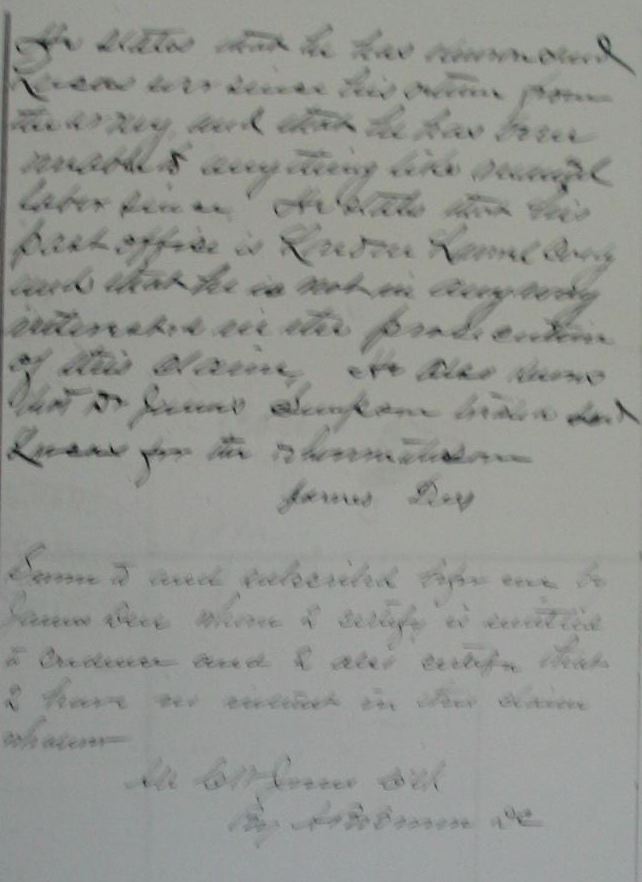 He states that he has known said
Lucas ever since his return from
the army and that he has been
unable to anything like manual
labor since. He states that his
post office is London Laurel Co Ky
and that he is not in any way
interested in the prosecution
of this claim. He also knows
that Dr James Simpson treated said
Lucas for the rheumatism
James Dees
Sworn to and subscribed before me by
James Dees whom I certify is entitled
to credence and I also certify that
I have no interest in this claim
whatever
Clk
By DC